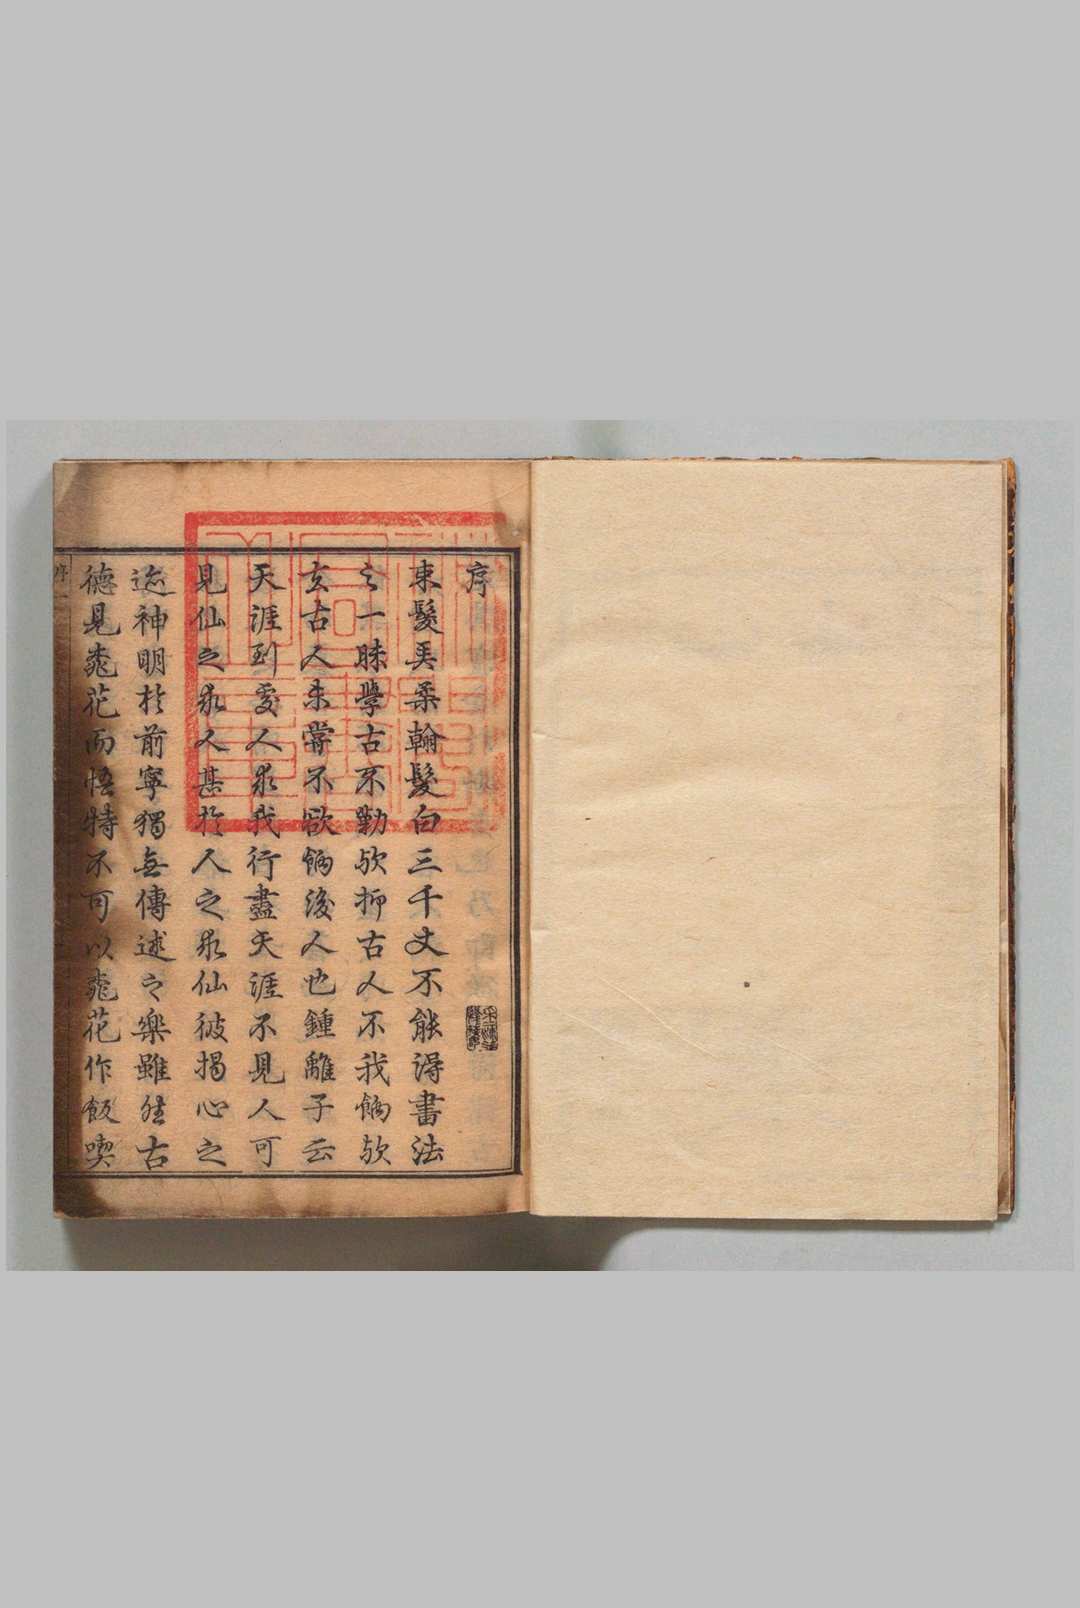 序
束髮弄柔翰髮白三千丈不能得書法
之一眛學古不勤欤抑古人不我餉欤
玄古人未嘗不欲餉後人也鍾離子云
天涯到處人求我行盡天涯不見人可
見仙之求人甚於人之求仙彼揭心之
迹神明於前寧獨無傳述之樂雖然古
德見桃花而悟特不可以桃花作飯喫
序一